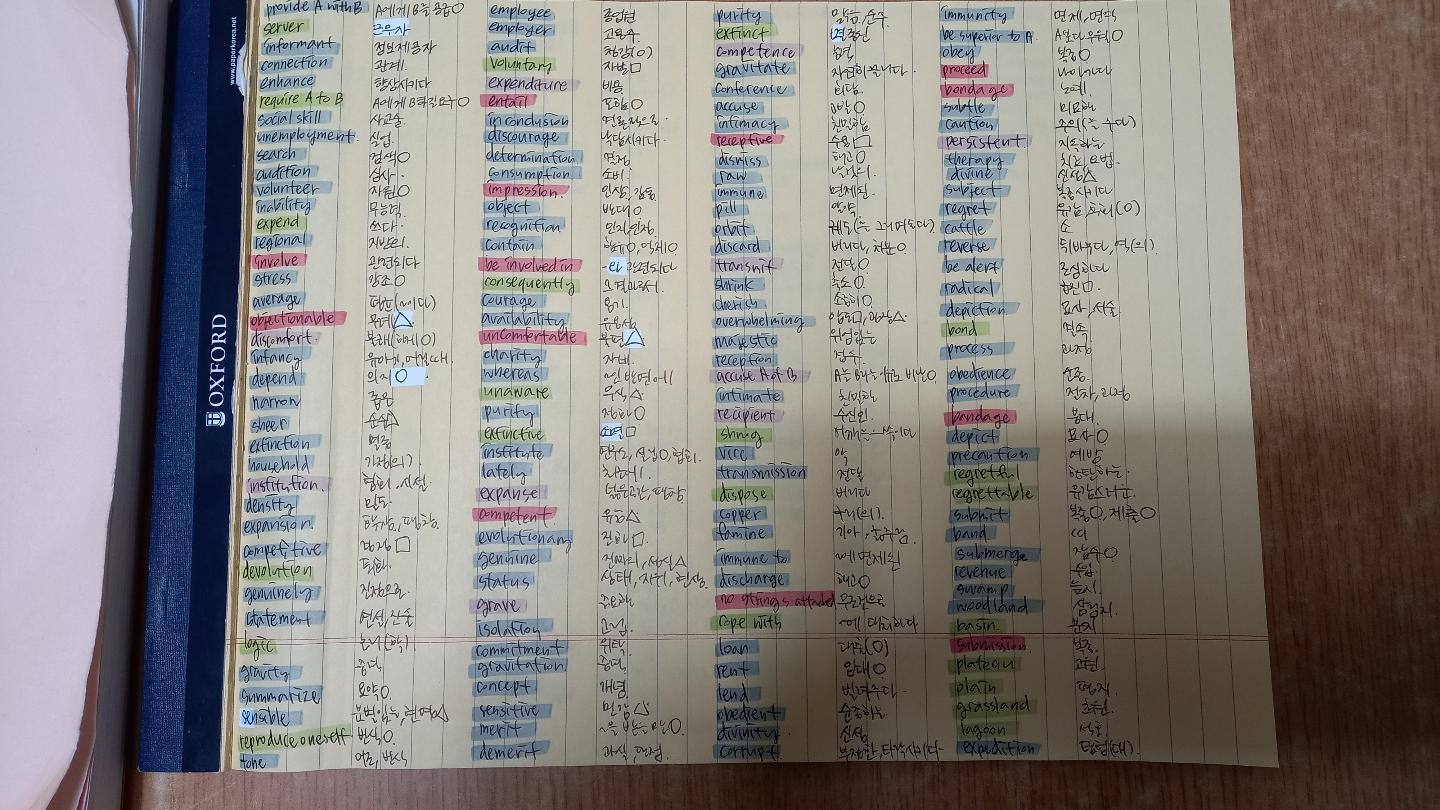 provide A with B A에게 B를 공급○
server 근무자
informant 정보제공자
connection 관계.
enhance 향상시키다
require A to B A에게 B하길 요구○
social skill 사교술.
unemployment. 실업.
search 검색○
audition 심사.
volunteer 자원○
inability 무능력.
expend 쓰다.
regional 지방의.
involve 관련되다
stress 강조○
average 평균(~이다)
objectionable 무례△
discomfort. 불쾌(하게○)
infancy 유아기, 어릴때.
depend 의지○
narrow 좁은
sheer 순수△
extinction 멸종
household 가정(의).
institution. 협회, 시설.
density 밀도.
expansion. 확장, 팽창.
competitive 경쟁□
devolution 퇴화.
genuinely 진정으로.
statement 연설, 진술
logic 논리(학).
gravity 중력.
summarize 요약○.
sensible 분별있는, 현명△
reproduce oneself 번식○.
tone 어조, 방식
employee 종업원
employer 고용주.
audit 청강(○)
voluntary 자발□
expenditure 비용.
entail 포함○
in conclusion 결론적으로.
discourage 낙담시키다.
determination 결정.
consumption 소비.
impression. 인상, 감동.
object 반대○
recognition 인지, 인정.
contain 함유○, 억제○
be involved in -에 관련되다
consequently 그결과로서.
courage 용기.
availability 유용성.
uncomfortable 불편△
charity 자비.
whereas ~인 반면에
unaware 무식△.
purify 정화○
extinctive 소멸□
institute 연구소, 설립○, 협회.
lately 최근에.
expanse 넓은공간, 팽창.
competent. 유능△
evolutionary 진화□.
genuine 진짜의, 성실△
status 상태, 지위, 현상.
grave 중요한
isolation 고립.
commitment 위탁.
gravitation 중력.
concept 개념.
sensitive 민감△
merit ~을 받을만○.
demerit 과실, 단점.
purity 맑음, 순수.
extinct 멸종된
competence 능력.
gravitate 자연히 끌리다.
conference 회담.
accuse 고발○
intimacy 친밀함
receptive 수용□
dismiss 해고○
raw 날것의.
immune 면제된.
pill 알약.
orbit 궤도(를 그리며돌다)
discard 버리다, 처분○
transmit 전달○
shrink 축소○.
cherish 소중히○.
overwhelming 압도□, 굉장△.
majestic 위엄있는
reception 접수.
accuse A of B A를 B라는 이유로 비난○.
intimate 친밀한
recipient 수신인.
shrug 어깨를 으쓱이다
vice 악
transmission 전달
dispose 버리다
copper 구리(의).
famine 기아, 굶주림.
immune to ~에 면제된
discharge 해고○
no strings attached 무조건으로
cope with ~에 대처하다
loan 대출(○)
rent 임대○
lend 빌려주다.
obedient 순종하는
divinity. 신성.
corrupt. 부정한, 타락시키다.
immunity 면제, 면역
be superior to A. A보다 우위○
obey 복종○
proceed 나아가다
bondage 노예.
subtle 미묘한
caution 주의(를 주다)
persistent 지속하는
therapy 치료, 요법.
divine 신성△
subject 복종시키다
regret 유감, 후회(○)
cattle 소
reverse 뒤바꾸다, 역(의).
be alert 조심하다
radical 급진□.
depiction 묘사, 서술
bond 결속
process 과정.
obedience 순종.
procedure 절차, 과정
bandage 붕대.
depict 묘사○
precaution 예방
regretful 한탄하는.
regrettable 유감스러운.
submit 복종○, 제출○
band 띠
submerge 잠수○
revenue 수입
swamp 늪지.
woodland 삼림지.
basin 분지
submission. 복종.
plateau 고원.
plain 평지.
grassland 초원.
lagoon 석호.
expedition 탐험(대).
OXFORD
www.paperkorea.net